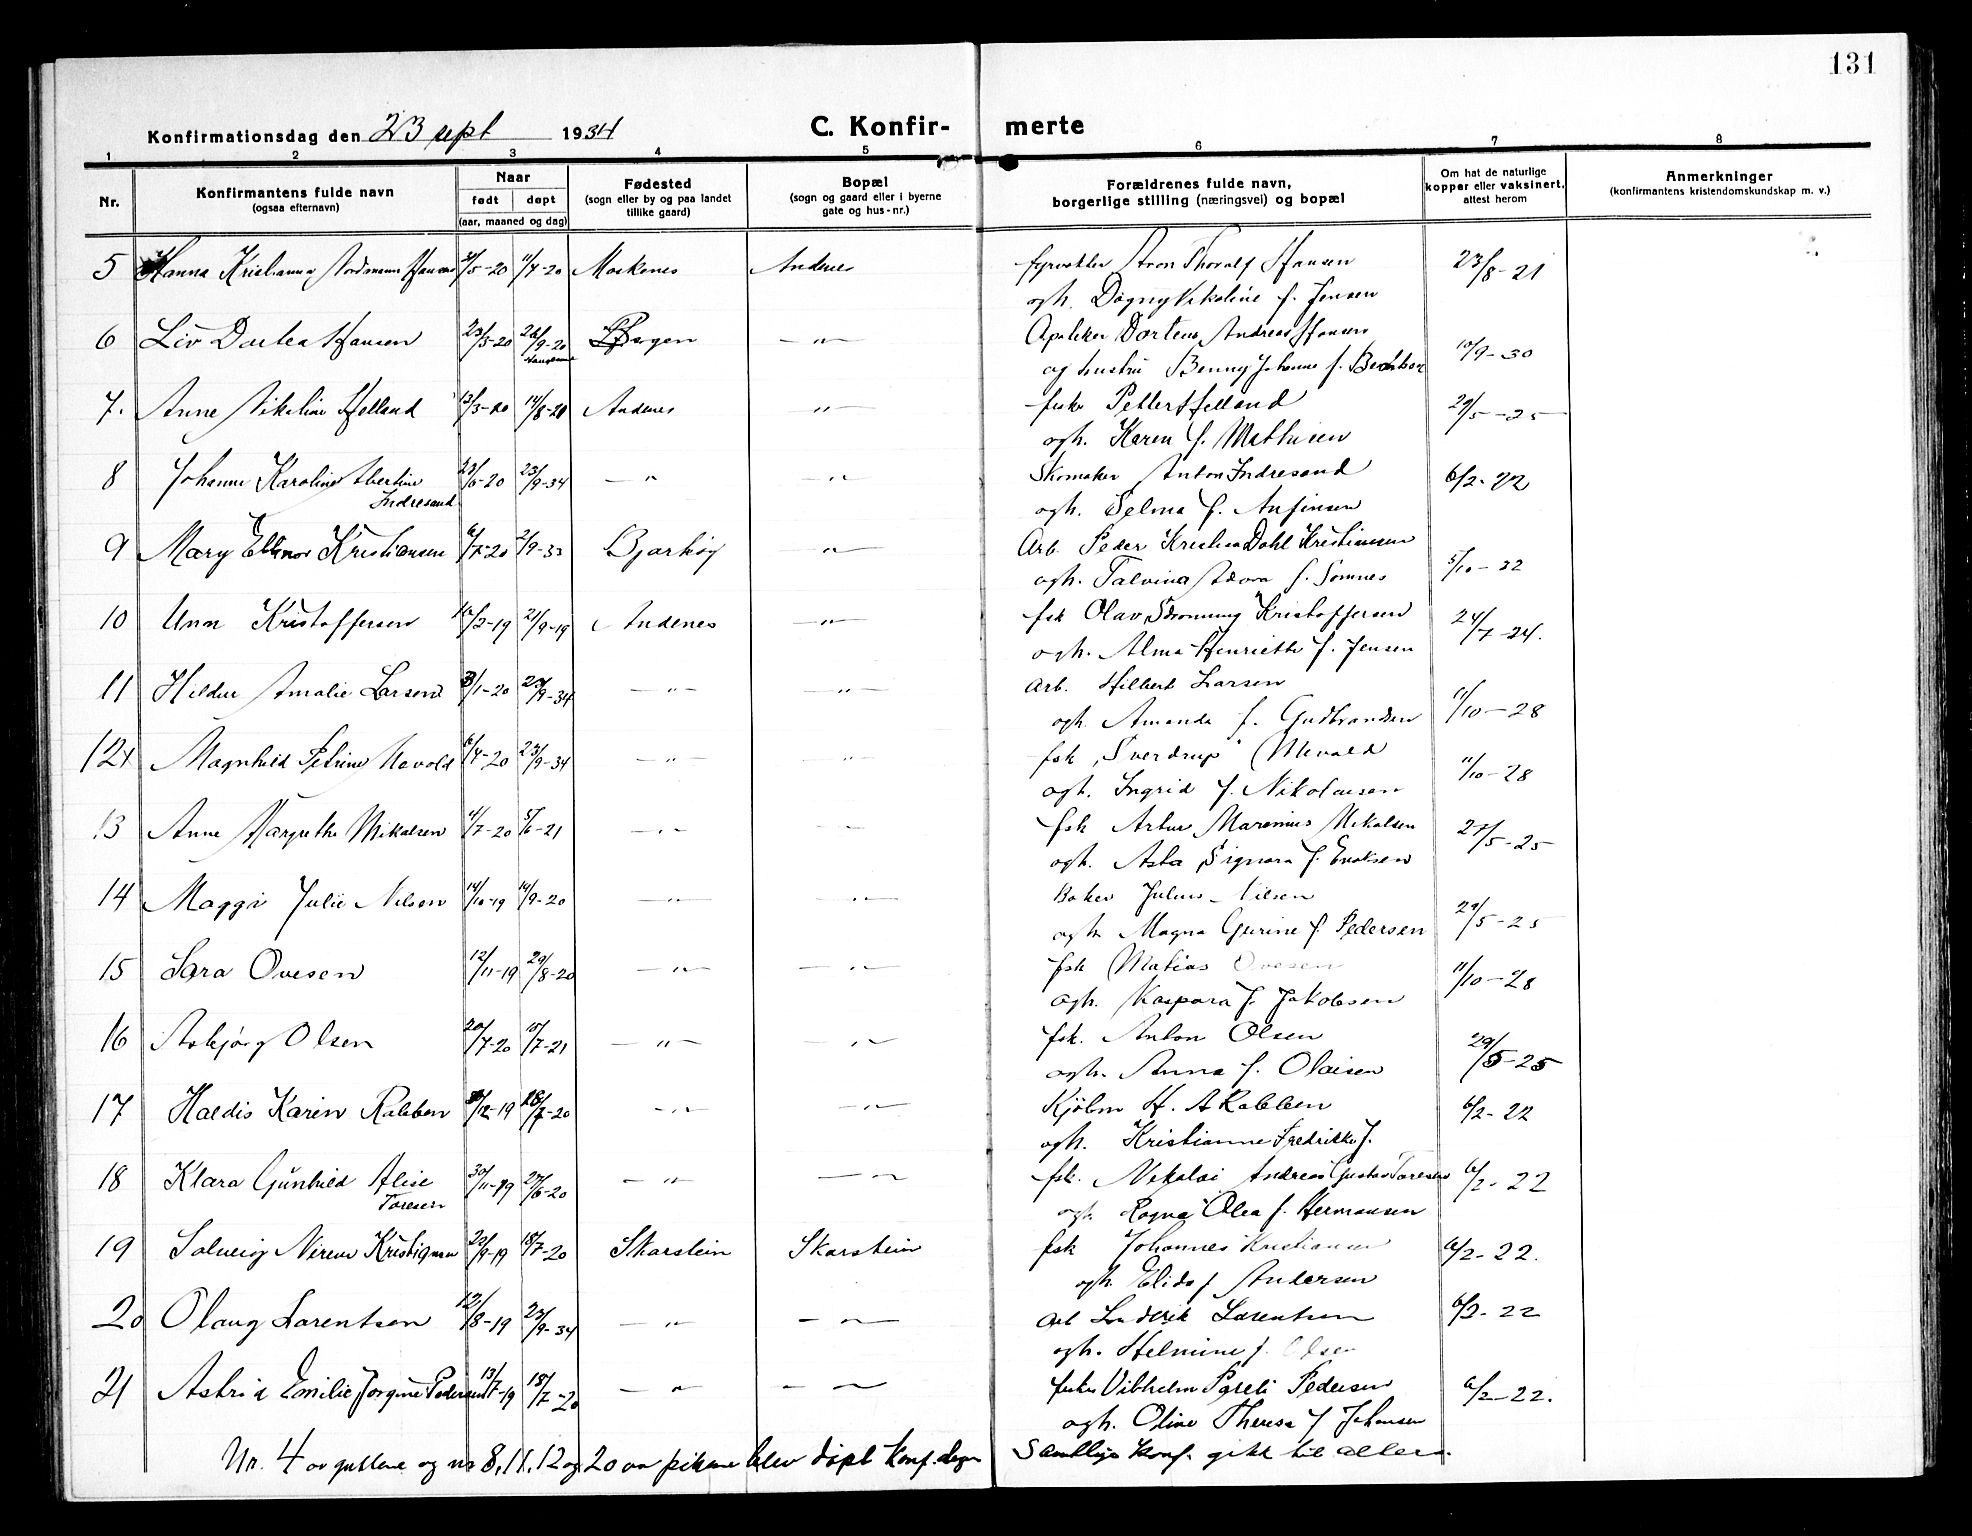 131
Konfirmationsdag den 23 sept 1934 C. Konfir- merte
1 2 3 4 5 6 7 8
Nr.
Konfirmantens fulde navn
(ogsaa efternavn)
Naar
født døpt
(aar, maaned og dag)
Fødested
(sogn eller by og paa landet
tillike gaard)
Bopæl
(sogn og gaard eller i byerne
gate og hus-nr.)
Forældrenes fulde navn,
borgerlige stilling (næringsvei) og bopæl
Om hat de naturlige
kopper eller vaksinert,
attest herom
Anmerkninger
(konfirmantens kristendomskundskap m. v.)
5 Hanna Hansen /5-20 11/7-20 Moskenes Andenes fyrvokter Aron Thoralf Hansen 23/8-21
ogh. Dagny Nikoline f. Jensen
6 Liv Dortea Hansen 23/5-20 26/9-20 Bergen -„- Apoteker Andreas Hansen 10/9-30
og hustru Benny Johanne f.
7. Anne Nikoline Helland 13/3-20 14/8-20 Andenes „- fisker Petter Helland 29/5-25
ogh. Karen f. Mathisen
8 Johanne Karoline Albertine 23/6-20 23/9-34 -„- -„- Skomaker Anton Indresand 6/2-22
Indresand
ogh. Selma f. Anfinsen
9 Mary Ellinor Kristiansen 6/7-20 2/9-33 Bjarkøy -„- Arb. Peder Kristian Dahl Kristiansen 5/10-22
ogh. Talvina f. Somnes
10 Unn Kristoffersen 10/2-19 21/9-19 Andenes -„- fsk Olav Kristoffersen 24/7-24.
ogh. Alma Henriette f. Jensen
11 Hildur Amalie Larsen 3/1-20 23/9-34 -„- -„- Arb. Hilbert Larsen 11/10-28
ogh. Amanda f. Gudbrandsen
12 Magnhild Petrine Mevold 6/4-20 23/9-34 -„- -„- fsk „Sverdrup" Mevold 11/10-28
ogh. Ingrid f. Nikolaisen
13 Anne Margrethe Mikalsen 4/7-20 5/6-21 -„- -„- fsk Artur Marenius Mikalsen 27/5-25
ogh. Asta Signora f.
14 Maggi Julie Nilsen 14/10-19 14/9-20 -„- -„- Baker Julius Nilsen 29/5-25
ogh Magna Gurine f. Pedersen
15 Sara Ovesen 12/11-19 29/8-20 -„- -„- fsk Matias Ovesen 11/10-28
ogh. Kaspara f. Jakobsen
16 Asbjørg Olsen 20/7-20 10/7-21 -„- -„- fsk. Anton Olsen 29/5-25
ogh. Anna f. Olaisen
17 Haldis Karin Rabben /12-19 18/7-20 -„- -„- Kjøbm H. A Rabben 6/2-22
ogh. Kristianne Fredrikke f.
18 Klara Gunhild Alise 30/11-19 27/6-20 -„- -„- fsk. Nikolai Andreas Gustav Toresen 6/2-22
Toresen
ogh Ragna Olea f. Hermansen
19 Solveig Kristiansen 22/9-19 18/7-20 Skarstein Skarstein fsk Johannes Kristiansen 6/2-22.
ogh Elida f Andersen
20 Olaug Larentsen 12/8-19 23/9-34 -„- -„- Arb Larentsen 6/2-22
ogh. Helmine f. Olsen
21 Astrid Emilie Jorgine Pedersen 13/7-19 18/7-20 -„- -„- fisker Vilhelm Pedersen 6/2-22.
ogh. Oline Theresa f Johansen
Nr. 4 av guttene og nr 8, 11, 12 og 20 av pikene blev døpt Konf. dagen Samtlige konf. gikk til alters.